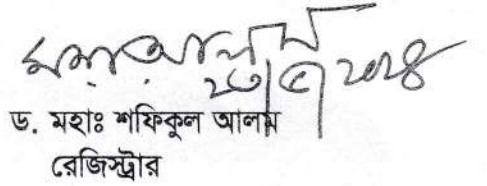 ২৩/৫/২০২৪
ড. মহাঃ শফিকুল আলম
রেজিস্ট্রার